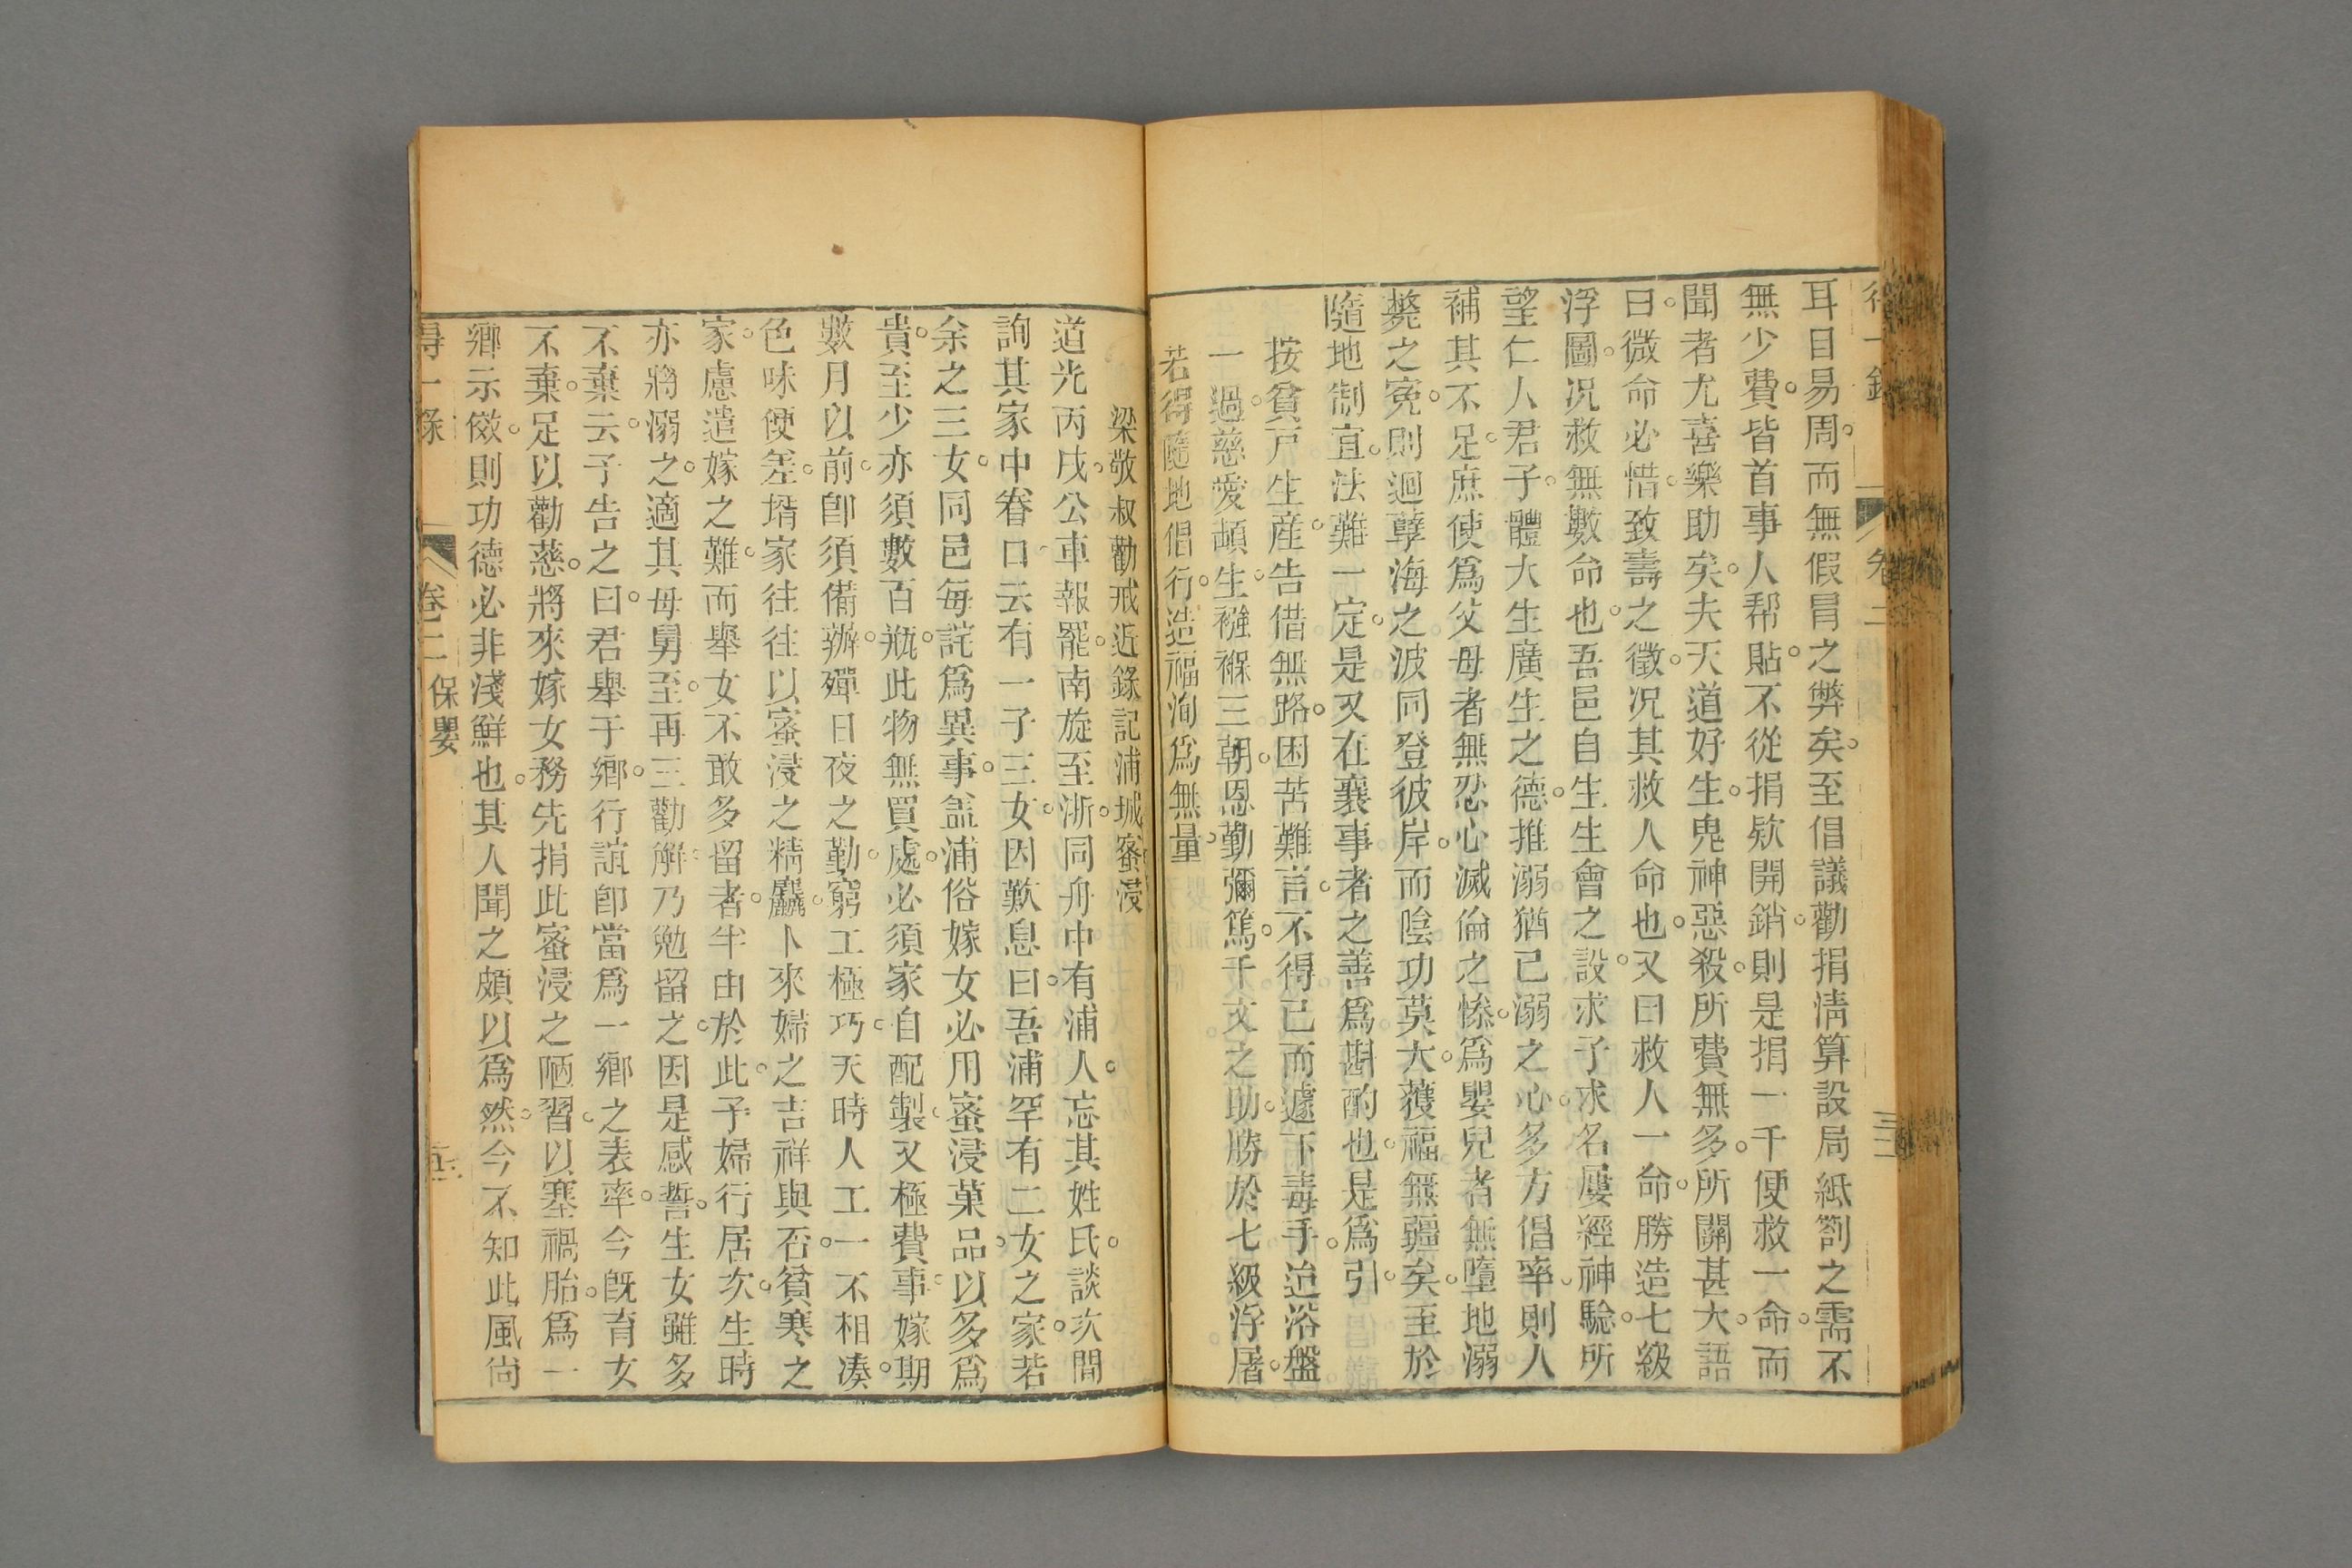 得一錄
卷二
耳目易周而無假冒之弊矣至倡議勸捐清算設局紙劄之需不
無少費皆首事人帮貼不從捐欵開銷則是捐一千便救一命而
聞者尤喜樂助矣夫天道好生鬼神惡殺所費無多所關甚大語
曰微命必惜致壽之徵况其救人命也又曰救人一命勝造七級
浮圖况救無數命也吾邑自生生會之設求子求名屢經神驗所
望仁人君子體大生廣生之德推溺猶已溺之心多方倡率則人
補其不足庶使爲父母者無忍心滅倫之慘爲嬰兒者無墮地溺
斃之寃則迴孽海之波同登彼岸而陰功莫大獲福無疆矣至於
隨地制宜法難一定是又在襄事者之善爲斟酌也是爲引
按貧戸生産告借無路困苦難言不得已而遽下毒手迨浴盤
一過慈愛頓生襁褓三朝恩勤彌篤千文之助勝於七級浮屠
若得隨地倡行造福洵爲無量
梁敬叔勸戒近錄記浦城蜜浸
道光丙戌公車報罷南旋至浙同舟中有浦人忘其姓氏談次間
詢其家中眷口云有一子三女因歎息曰吾浦罕有二女之家若
余之三女同邑每詫爲異事盖浦俗嫁女必用蜜浸菓品以多爲
貴至少亦須數百瓶此物無買處必須家自配製又極費事嫁期
數月以前卽須備辦殫日夜之勤窮工極巧天時人工一不相湊
色味便差壻家往往以蜜浸之精麤卜來婦之吉祥與否貧寒之
家慮遣嫁之難而舉女不敢多留者半由於此予婦行居次生時
亦將溺之適其母舅至再三勸解乃勉留之因是感誓生女雖多
不棄云予告之曰君舉于鄉行誼卽當爲一鄉之表率今旣育女
不棄足以勸慈將來嫁女務先捐此蜜浸之陋習以塞禍胎爲一
鄉示儆則功德必非淺鮮也其人聞之頗以爲然今不知此風尙
得一錄
卷二
保嬰